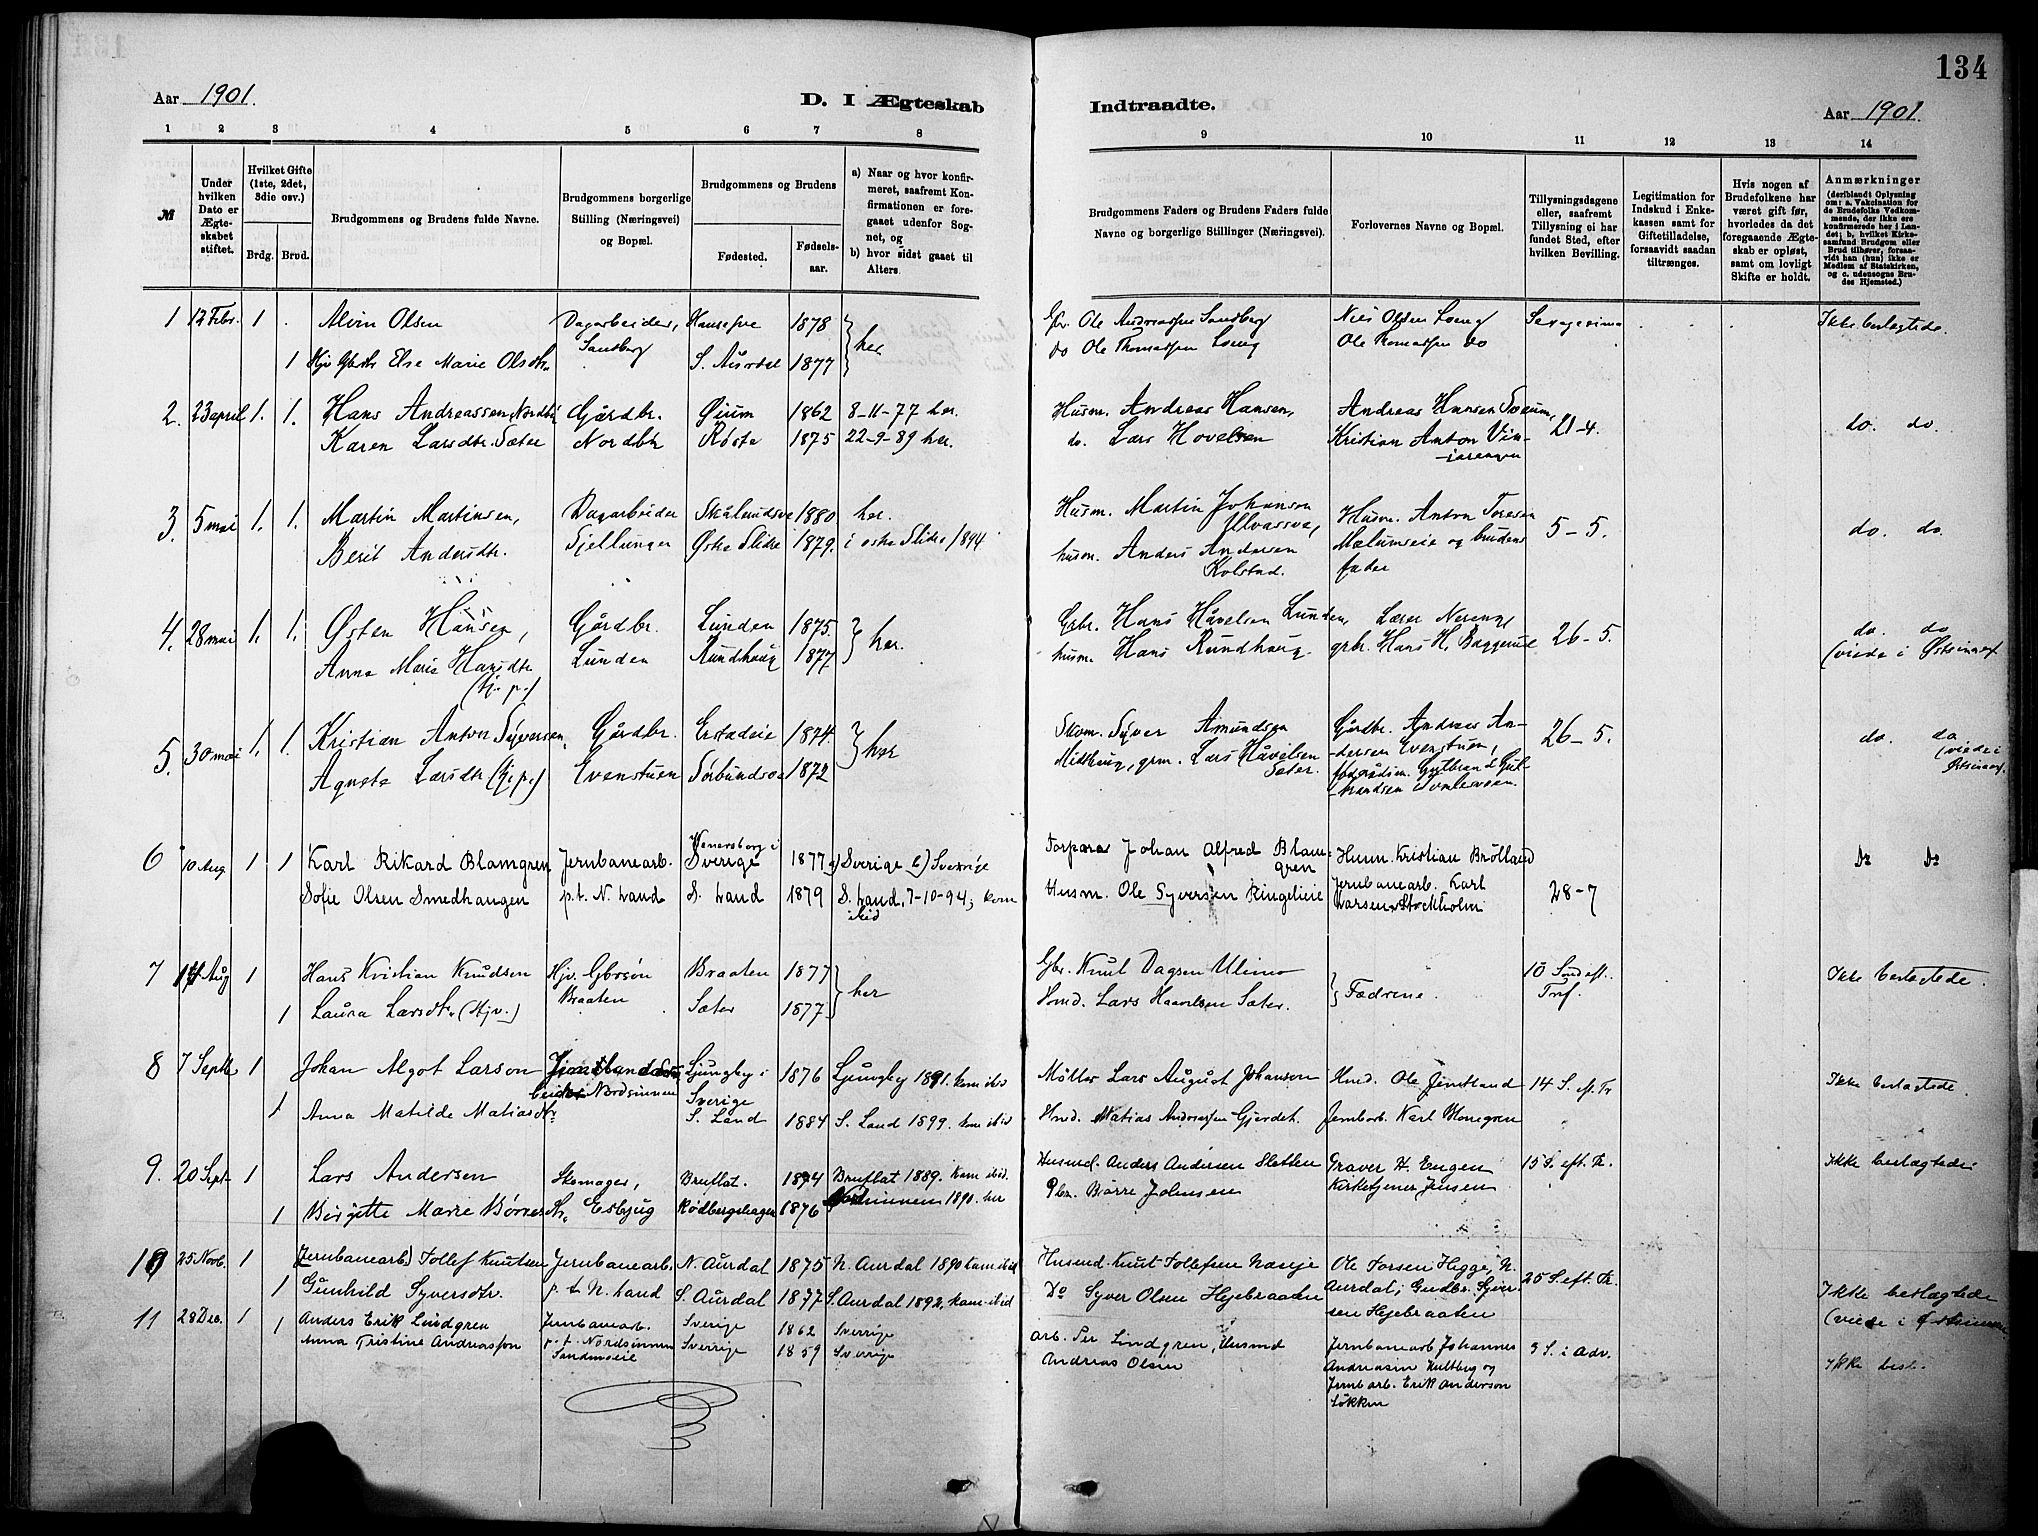 134
Aar 1901.
D. I Ægteskab
Indtraadte.
Aar 1901.
1 2 3 4 5 6 7 8
9 10 11 12 13 14
№
Under hvilken Dato er Ægteskabet stiftet.
Hvilket Gifte (1ste, 2det, 3die osv.)
Brdg. Brud.
Brudgommens og Brudens fulde Navne.
Brudgommens borgerlige Stilling (Næringsvei) og Bopæl.
Brudgommens og Brudens
Fødested.
Fødselsaar.
a) Naar og hvor konfirmeret, saafremt Konfirmationen er foregaaet udenfor Sognet, og
b) hvor sidst gaaet til Alters.
Brudgommens Faders og Brudens Faders fulde Navne og borgerlige Stillinger (Næringsvei).
Forlovernes Navne og Bopæl.
Tillysningsdagene eller, saafremt Tillysning ei har fundet Sted, efter hvilken Bevilling.
Legitimation for Indskud i Enkekassen samt for Giftetilladelse, forsaavidt saadan tiltrænges.
Hvis nogen af Brudefolkene har været gift før, hvorledes da det foregaaende Ægteskab er opløst, samt om lovligt Skifte er holdt.
Anmærkninger
(deriblandt Oplysning om: a. Vakcination for de Brudefolks Vedkommende, der ikke ere konfirmerede her i Landet; b. hvilket Kirkesamfund Brudgom eller Brud tilhører, forsaavidt han (hun) ikke er Medlem af Statskirken, og c. udensogns Brudes Hjemsted.)
1 12 Febr. 1 . Alvin Olsen Dagarbeider, 1878 Ole Andreassen Sandberg Nils Olsen Ikke beslægtede.
1 Else Marie Olsdtr. Sandberg S. Aurdal 1877 } her do Ole Thomassen Ole Thomassen do
2. 23 april 1. 1. Hans Andreassen Nordbu Gårdbr. Øium 1862 8-11-77 her. Husm. Andreas Hansen, Andreas Hansen 21-4. do. do.
Karen Larsdtr. Sæter Nordbu Røste 1875 22-9-89 her. do. Lars Hovelsen Kristian Anton
3. 5 mai 1. 1. Martin Martinsen, Dagarbeider 1880 her. Husm. Martin Johanson Husm. Anton Toresen 5-5. do. do.
Berit Andersdtr. Østre Slidre 1879. i østre Slidre 1894 husm. Anders Andersen og brudens
Kolstad. fader
4. 28 mai 1. 1. Østen Hansen, Gårdbr. Lunden 1875. } her. Grbr. Hans Håvelsen Lunden, Lærer Nereng, 26-5. do. do
Anna Maria Hansdtr. Lunden Rundhaug 1877 husm. Hans Rundhaug grbr. Hans H. Baggerud (viede i Østsinnen
(hj. p.)
5. 30 mai 1. 1. Kristian Anton Syversen, Gårdbr. 1874. } her Syver Amundsen Gårdbr. Andreas An- 26-5. do. do
Agneta Larsdtr. (hj. p.) Evenstuen 1872 Lars Håvelsen -dersen Evenstuen, (viede i
Sæter. Østsinnen.
6 10 Aug. 1 1 Karl Rikard Blamgren Jernbanearb. Venersborg i Sverige 1877 a) Sverige b) Sverige Torpare Johan Alfred Blam- Husm. Kristian Brølland Do Do
gren
Sofie Olsen Smedhaugen p. t. N. Land S. Land 1879 S. Land, 7-10-94; kom Husm. Ole Syversen Ringelieie Jernbanearb. Karl 28-7
ibid Larsen, Stockholm
7 14 Aug 1 Hans Kristian Knudsen Hjv. Gbrsøn Braaten 1877 } her Gbr. Knut Dagsen } Fædrene. 10 Snd eft. Ikke beslægtede.
1 Laura Larsdtr. (Hjv.) Braaten Sæter 1877 Hmd. Lars Haavelsen Sæter. Tref.
8 7 Septbr 1 Johan Algot Larson Ljungby i 1876 Ljungby 1891. kom ibid Møller Lars August Johanson Hmd. Ole 14 S. ef. Tr Ikke beslægtede.
Nordsinnen Sverige
1 Anna Matilde Matiasdtr. S. Land 1884 S. Land 1899. kom ibid Hmd. Matias Andreassen Gjerdet. Jernbarb. Karl Blomgren
9. 20 Sept. 1 Lars Andersen Skomager, Bruflat. 1874 Bruflat 1889. kom ibid. Husmd. Anders Andersen Sletten Graver H. Engen 15 S. eft. Tr. Ikke beslægtede
1 Birgitte Marie Esbjug Rødbergshagen 1876 1890. her Børre Johnsen Kirketjener Jensen
10 25 Novb. 1 (Jernbanearb) Tollef Knutsen Jernbanearb. N. Aurdal 1875 N. Aurdal 1890 kom. ibid Husmd. Knut Tollefsen Ole Torsen Hegge, N. 25 S. eft. Tr.
1 Gunhild Syversdtr. p. t. N. Land S. Aurdal 1877 S. Aurdal 1892. kom. ibid Do Syver Olsen Hejebraaten Aurdal; Gudbr. Syver- Ikke beslægtede
sen Hejebraaten (viede i Østsinnen
11 28 Dec. 1 Anders Erik Lindgren Jernbanearb. Sverige 1862 Sverrige arb. Per Lindgren, Husmd Jernbanearb Johannes 3 S. i Adv.
1 Anna Kristine Andreasson p. t. Nordsinnen Sverrige 1859 Sverrige Andreas Olsen Andreasen Hultberg og Ikke besl.
Jernb arb. Erik Anderson
Løkken